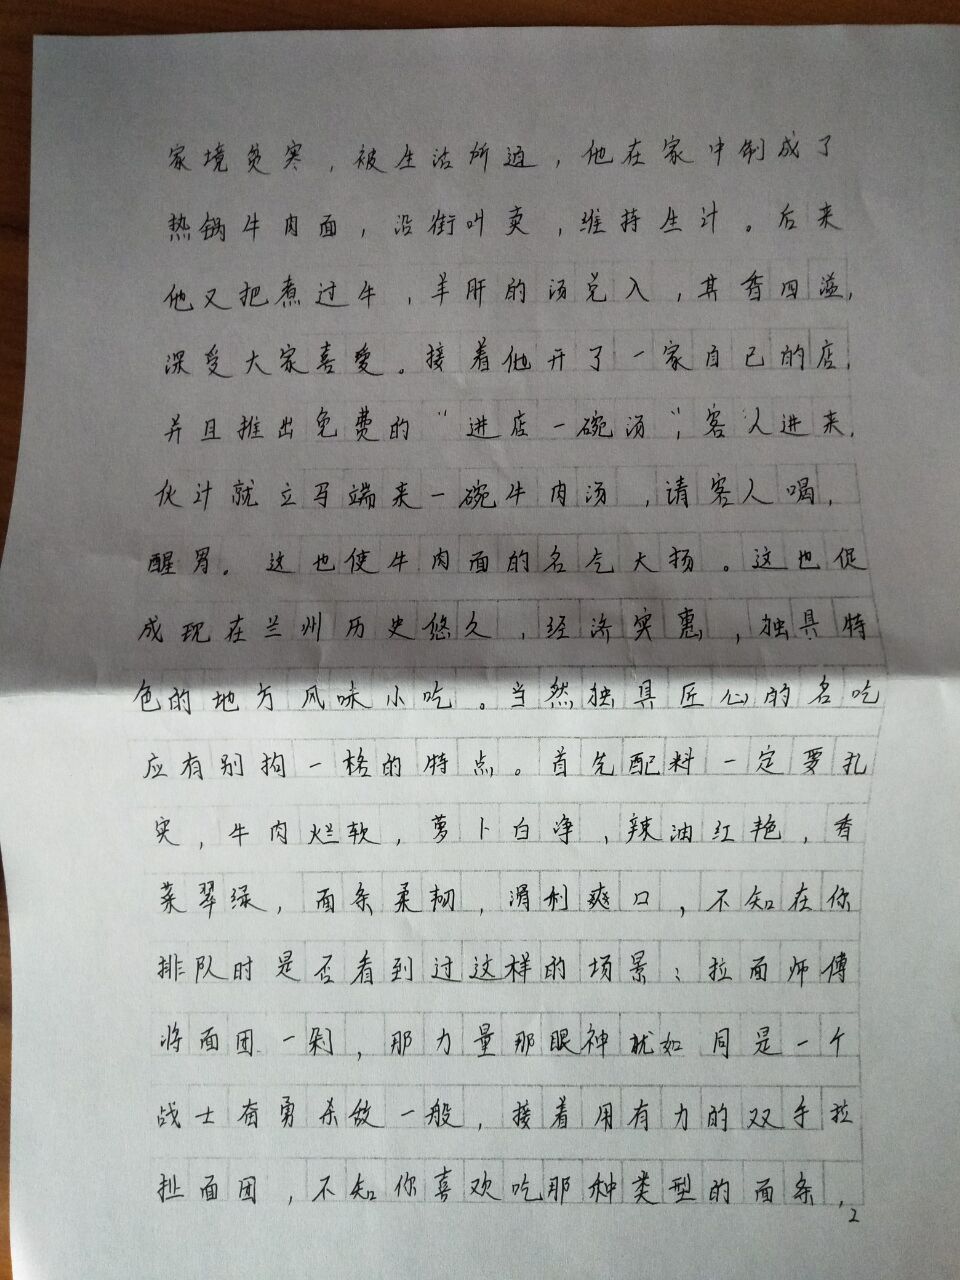 家境贫寒，被生活所迫，他在家中制成了
热锅牛肉面，沿街叫卖，维持生计。后来
他又把煮过牛，羊肝的汤兑入，其香四溢，
深受大家喜爱。接着他开了一家自己的店，
并且推出免费的“进店一碗汤”，客人进来，
伙计就立马端来一碗牛肉汤，请客人喝，
醒胃。这也使牛肉面的名气大扬。这也促
成现在兰州历史悠久，经济实惠，独具特
色的地方风味小吃。当然独具匠心的名吃
应有别拘一格的特点。首先配料一定要扎
实，牛肉烂软，萝卜白净，辣油红艳，香
菜翠绿，面条柔韧，滑利爽口，不知在你
排队时是否看到过这样的场景：拉面师傅
将面团一剁，那力量那眼神就如同是一个
战士奋勇杀敌一般，接着用有力的双手拉
扯面团，不知你喜欢吃那种类型的面条，
2